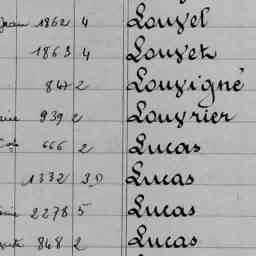 Jean 1862 4 Louvel
1863 4 Louvet
847 2 Louvigné
939 2 Louvrier
666 2 Lucas
1332 3D Lucas
2278 5 Lucas
848 2 Lucas